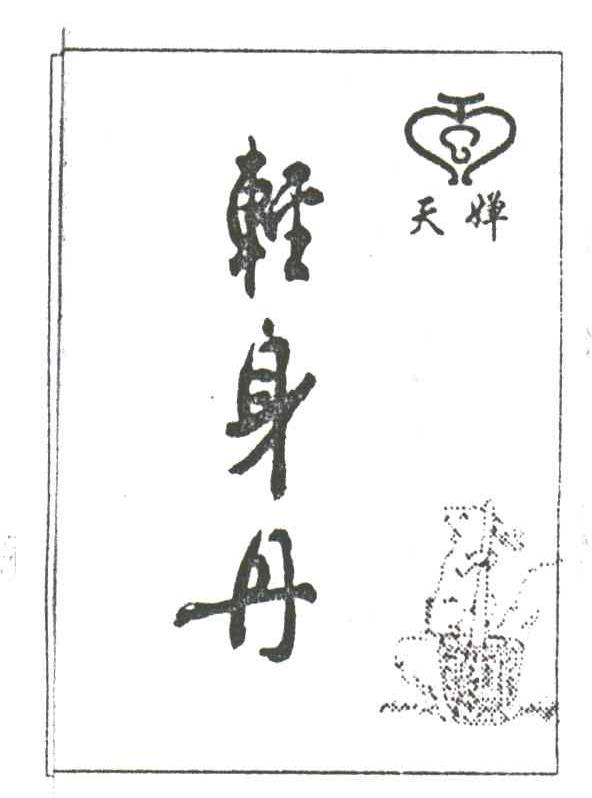 天婵
輕身丹